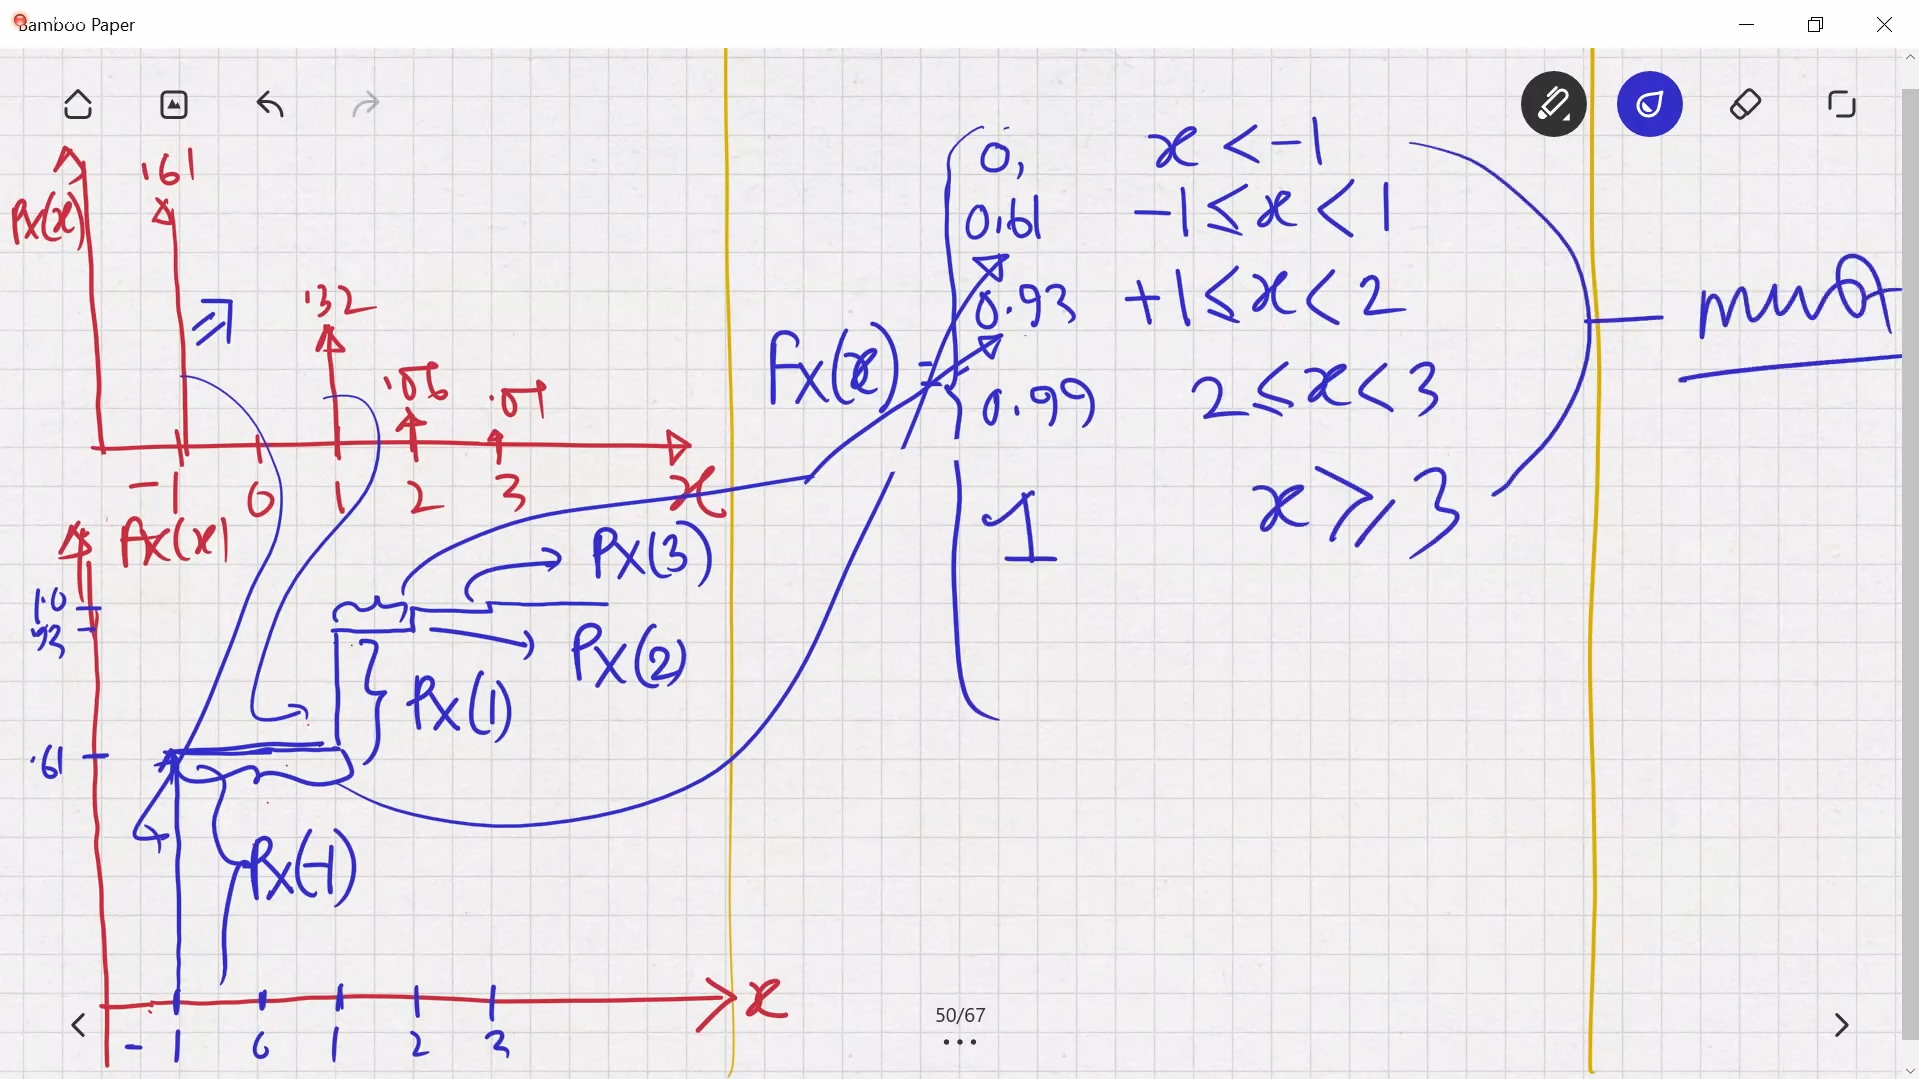 Bamboo Paper
.61
Px(x)
.32
.06
.01
-1 0 1 2 3 x
Fx(x)
1.0
.93
.61
Px(3)
Px(2)
Px(1)
Px(-1)
x
-1 0 1 2 3
Fx(x) =
0, x < -1
0.61 -1 ≤ x < 1
0.93 +1 ≤ x < 2
0.99 2 ≤ x < 3
1 x ≥ 3
must
50/67